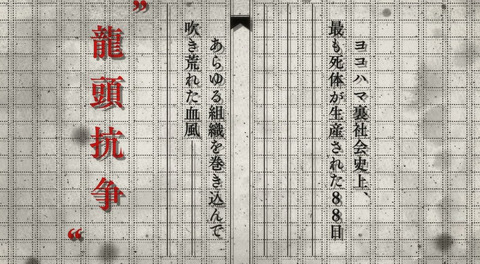 ヨコハマ裏社会史上、
最も死体が生産された88日
あらゆる組織を巻き込んで
吹き荒れた血風――
”龍頭抗争“